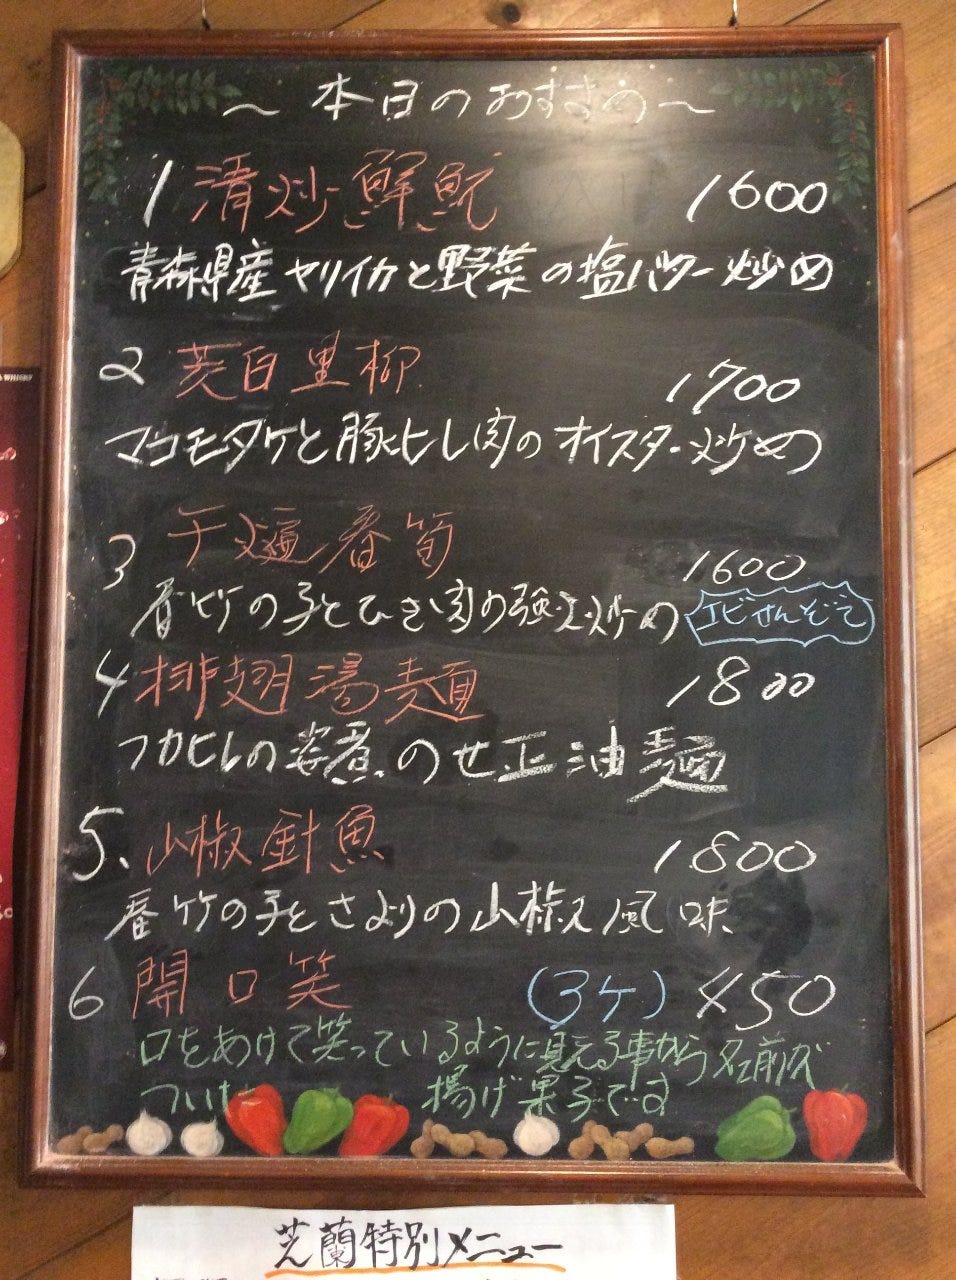 ～本日のおすすめ～
1 清炒鮮魷 1600
青森県産ヤリイカと野菜の塩バター炒め
2 茭白里柳 1700
マコモタケと豚ヒレ肉のオイスター炒め
3 干煸春筍 1600
春竹の子とひき肉の強火炒め エビせんぞえ
4 排翅湯麺 1800
フカヒレの姿煮のせ正油麺
5、山椒針魚 1800
春竹の子とさよりの山椒風味
6 開口笑 (3ケ) 450
口をあけて笑っているように見える事から名前が
ついた 揚げ菓子です
芝蘭特別メニュー